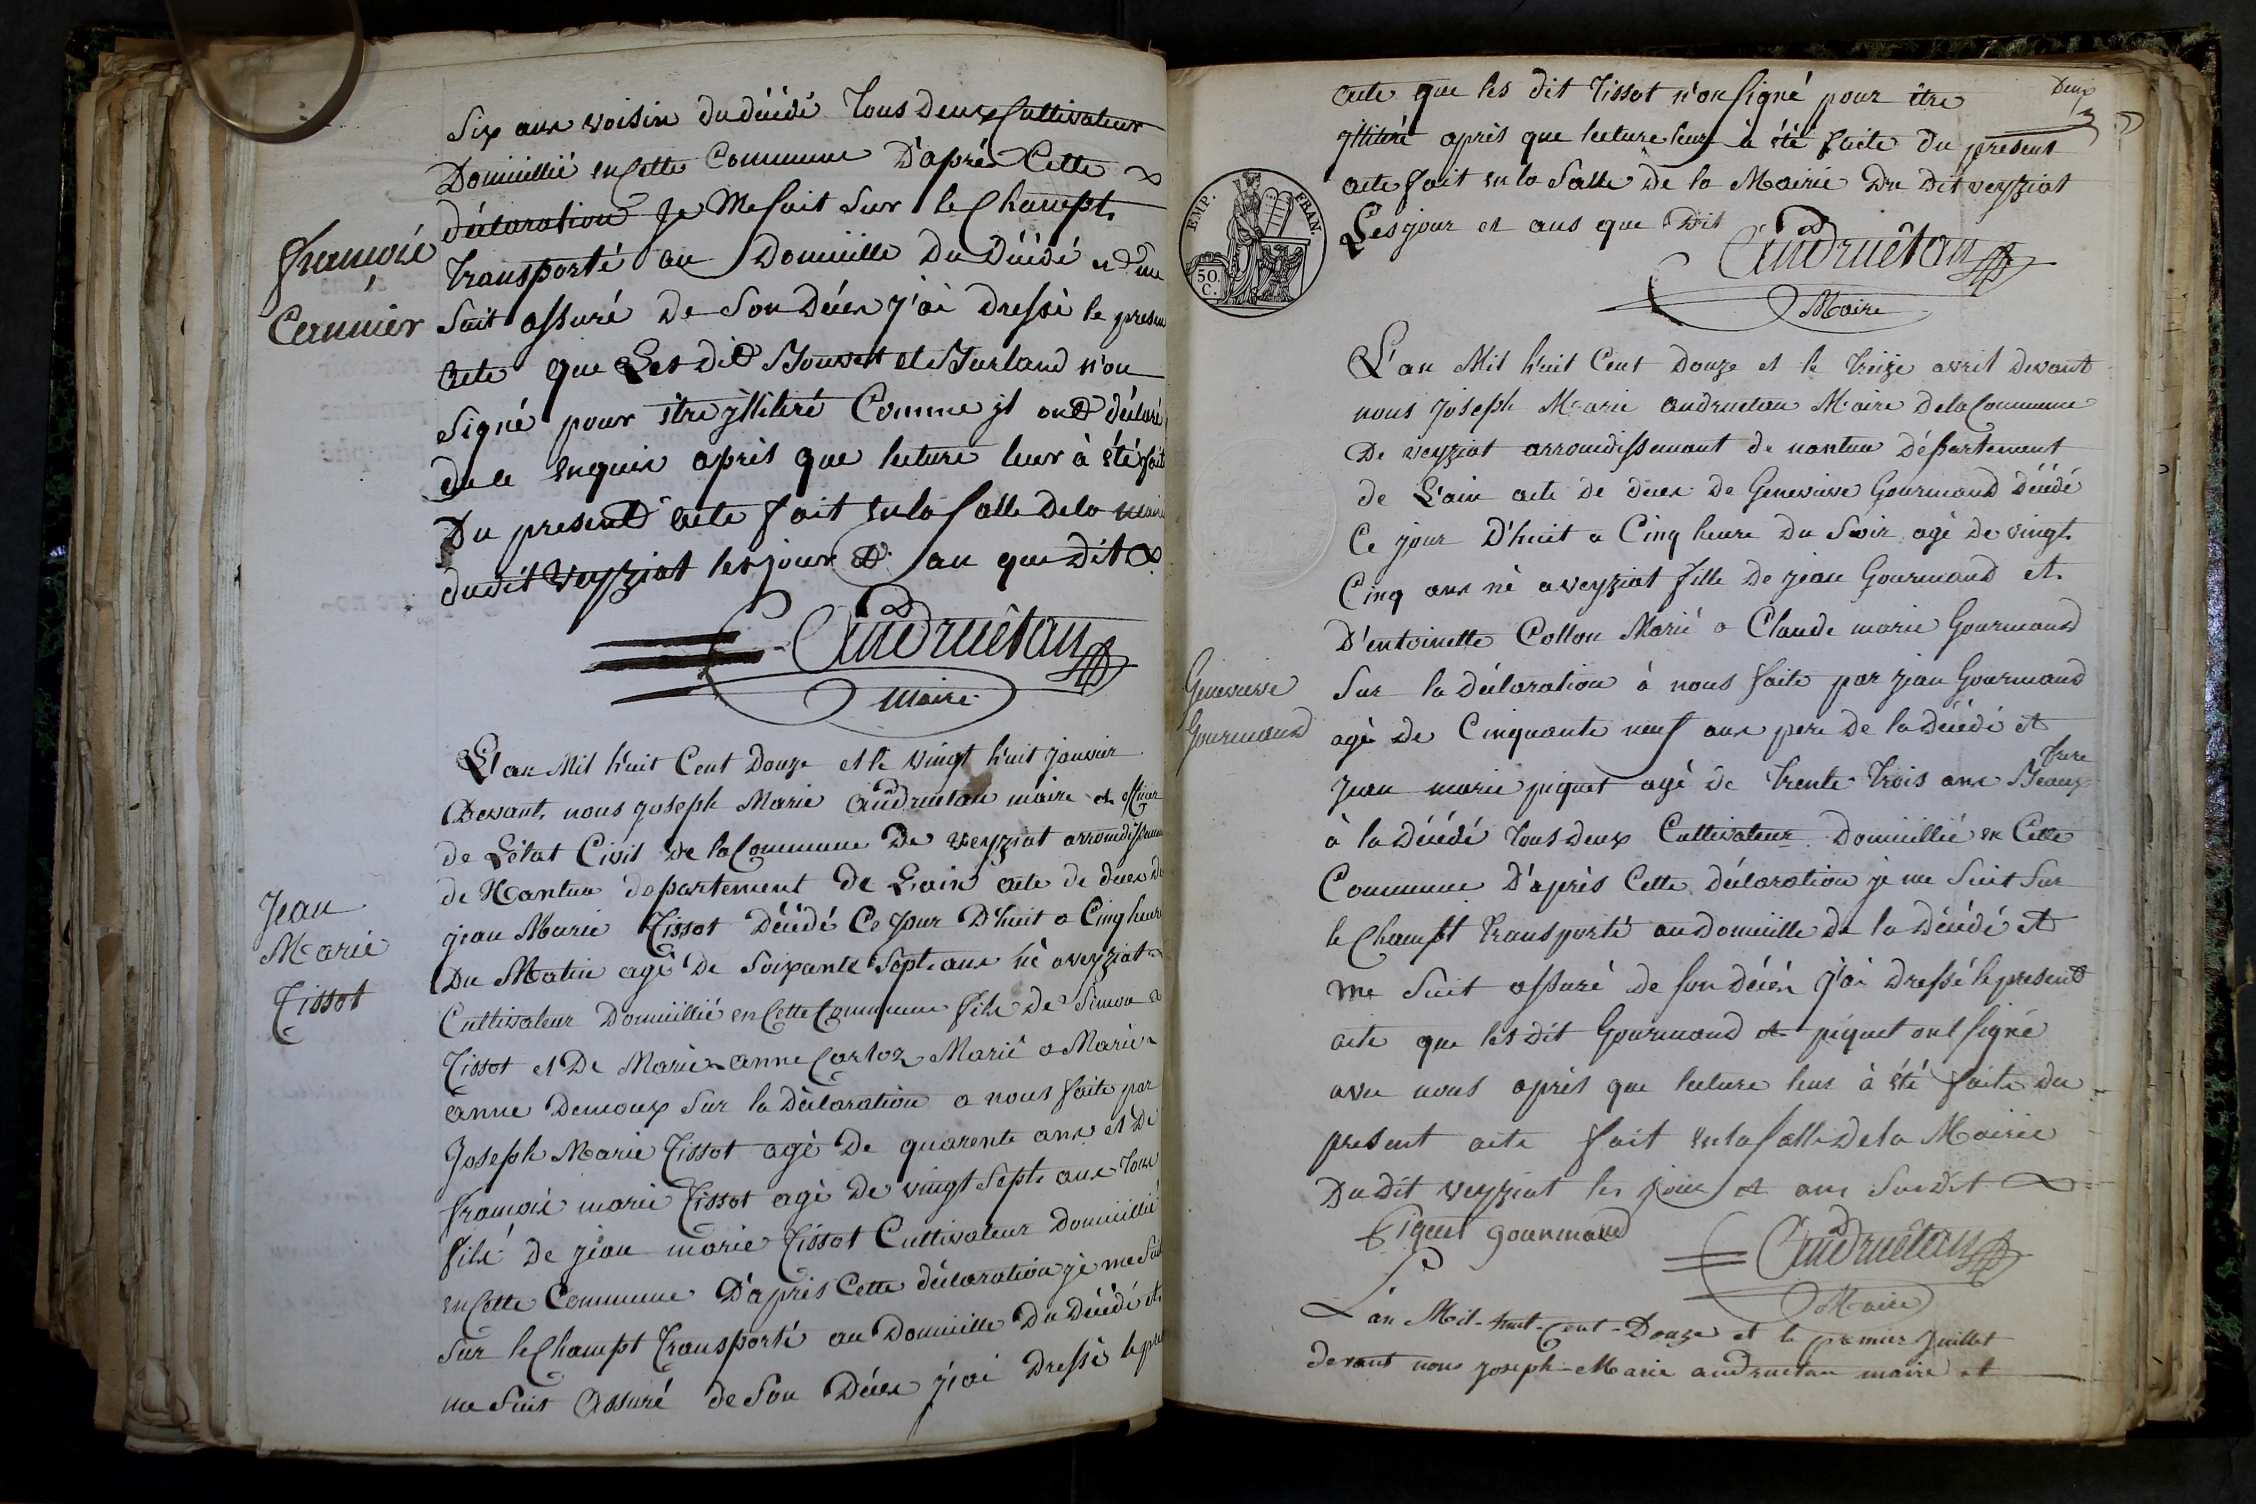 Six ans voisin du décidé tous deux Cultivateur
Domicillié en Cette Commune D'après Cette
déclaration je Me suit Sur le Champt
transporté au Domicille Du Décidé et me
Suit assuré de Son décès j'ai dressé le presen
acte que Les dit Bouvet et Burland n'on
signé pour itre yllitéré Comme jl ont déclaré
de ce enquis après que lecture leur à été fait
Du present acte fait en la Salle de la mairi
dudit Veyziat les jour et an que dit
François
Carrier
Andruétan
maire
L'an Mil huit Cent Douze et le vingt huit janvier
Devant nous joseph Marie Andruetan maire et officier
de L'état Civil de la Commune De veyziat arrondissement
de Nantua département de Lain acte de décès de
jean Marie Tissot Décédé Ce jour D'huit a Cinq heure
Du Matin agé De Soixante Sept ans né a veyziat
Cultivateur Domicillié en Cette Commune fils de Simon
Tissot et De Marie anne Carloz Marié a Marie
anne Demoux Sur la Déclaration a nous faite par
Joseph Marie Tissot agé De quarente ans et De
françois marie Tissot agé De vingt Sept ans tous
fils de jean marie Tissot Cultivateur Domicillié
en Cette Commune D'après Cette déclaration je me Suit
Sur le Champt Transporté au Domicille Du Décidé et
me Suit Assuré de Son Décès j'ai Dressé le pres
Jean
Marie
Tissot
Deux
acte que les dit Tissot n'on signé pour être
yllitéré après que lecture leur à été faite du present
acte fait en la Salle de la Mairie Du Dit veyziat
Les jour et ans que Dit
EMP. FRAN.
50
C.
Andruétan
Maire
L'an Mil huit Cent Douze et le treize avril devant
nous joseph Marie andruetan Maire De la Commune
De veyziat arrondissemant de nantua Département
de L'ain acte de décès de Genevieve Gourmand Décédé
Ce jour D'huit a Cinq heure du Soir agé de vingt
Cinq ans né a veyziat fille De jean Gourmand et
D'entoinette Collon Marié a Claude marie Gourmand
Sur la déclaration à nous faite par jean Gourmand
agé De Cinquante neuf ans pere de la Décédé et
frere
jean marie piquet agé de trente trois ans Beaux
à la Décédé tous deux Cultivateur Domicillié en Cette
Commune D'après Cette déclaration je me Suit Sur
le Champt transporté au Domicille De la Décédé et
me Suit assuré de son décès j'ai dressé le present
acte que les dit Gourmand et piquet ont signé
avec nous après que lecture leur à été faite du
present acte fait en la Salle de la Mairie
Du Dit veyziat les jour et ans Sus Dit
Genevieve
Gourmand
Piquet gourmand
Andruétan
Maire
L'an Mil-huit-Cent-Douze et le premier Juillet
devant nous joseph-Marie andruetan maire et